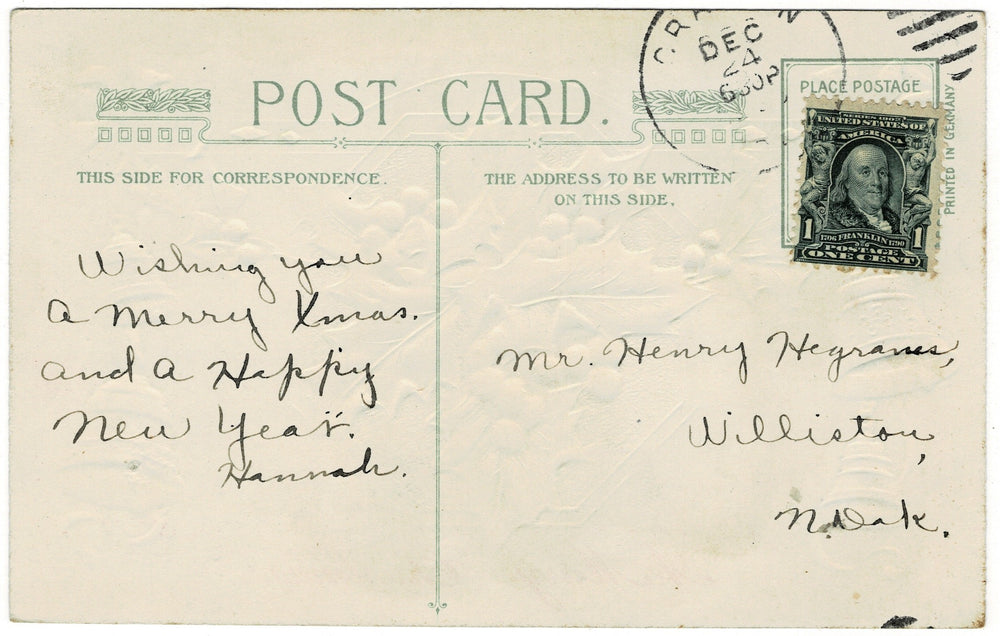 POST CARD.
THIS SIDE FOR CORRESPONDENCE.
THE ADDRESS TO BE WRITTEN
ON THIS SIDE.
DEC
24
630P
PLACE POSTAGE
PRINTED IN GERMANY
SERIES 1902
UNITED STATES OF
AMERICA
1 1
1706 FRANKLIN 1790
POSTAGE
ONE CENT
Wishing you
a Merry Xmas.
and a Happy
New Year.
Hannah.
Mr. Henry
Williston,
N.Dak.